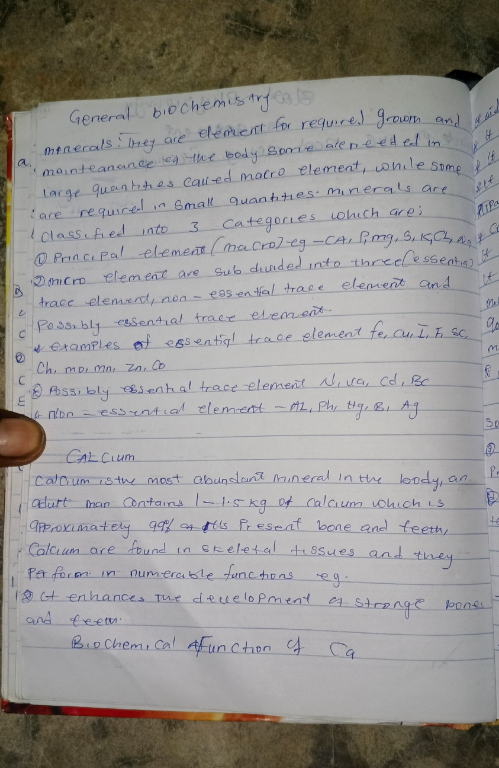 General biochemistry
minerals: They are element for required growm and
mainteanance of the body some are needed in
large quantities called macro element, while some
are required in small quantities. minerals are
Classified into 3 Categories which are;
① Principal element (macro) eg - CA, P, mg, S, K, Cl, Na
② micro element are sub divided into three (essential
trace element, non - essential trace element and
Possibly essential trace element.
examples of essential trace element fe, cu, I, F, SC,
Ch, mo, mn, Zn, Co
Possibly essential trace element N, va, Cd, Bc
non - essential element - AL, Pb, Hg, B, Ag
CALCium
Calcium is the most abundant mineral in the body, an
adult man contains 1-1.5 kg of calcium which is
approximately 99% of this Present bone and teeth,
Calcium are found in skeletal tissues and they
Perform in numerable functions eg.
It enhances the development of stronge bone
and teeth.
Biochemical function of Ca